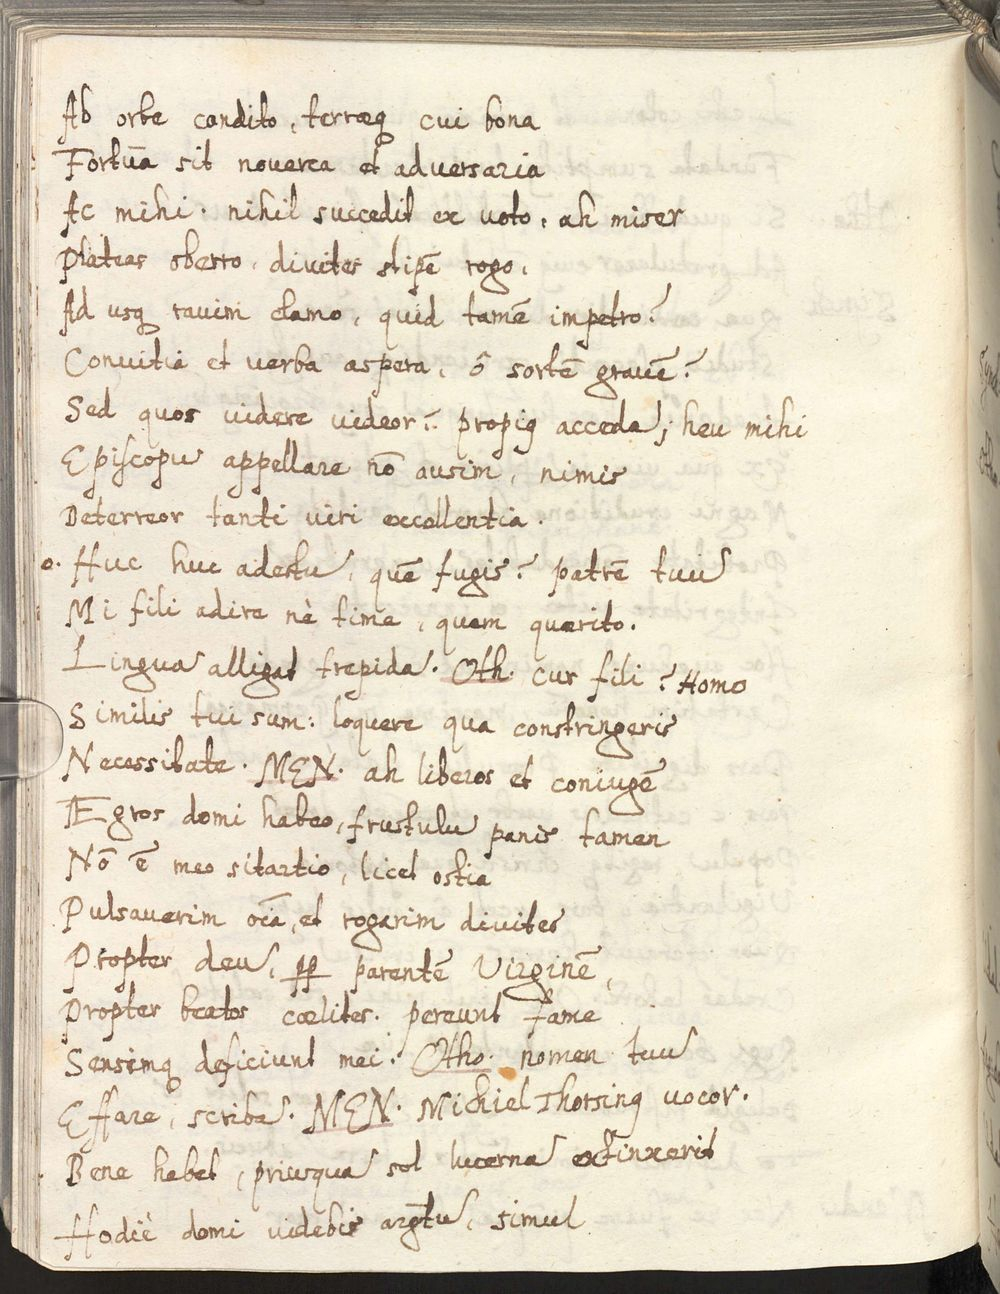 Ab orbe condito, terraeq cui bona
Fortūa sit noverca et adversaria
Ac mihi. nihil succedit ex voto, ah miser
Plateas oberro, divites stipē rogo,
Ad usq ravim clamo, quid tamē impetro?
Convitia et verba aspera, ô sortē gravē?
Sed quos videre videor? propiq accedā; heu mihi
Episcopū appellare nō ausim, nimis
Deterreor tanti viri excellentia.
o. Huc huc adestū, quē fugis? patrē tuū
Mi fili adire nè time, quem quaerito.
Linguā alligat trepida. Oth. cur fili? Homo
Similis tui sum: loquere qua constringeris
Necessitate. MEN. ah liberos et coniugē
AEgros domi habeo, frustulū panis tamen
Nō ē meo sitartio, licet ostia
Pulsaverim oīa, et rogarim divites
Propter deū, pp parentē Virginē,
Propter beatos coelites. pereunt fame
Sensimq deficiunt mei. Otho. nomen tuū
Effare, scribā. MEN. Michiel Thorsing vocor.
Bene habet, priusquā sol lucernā extinxerit
Hodiè domi videbis argtū, simul